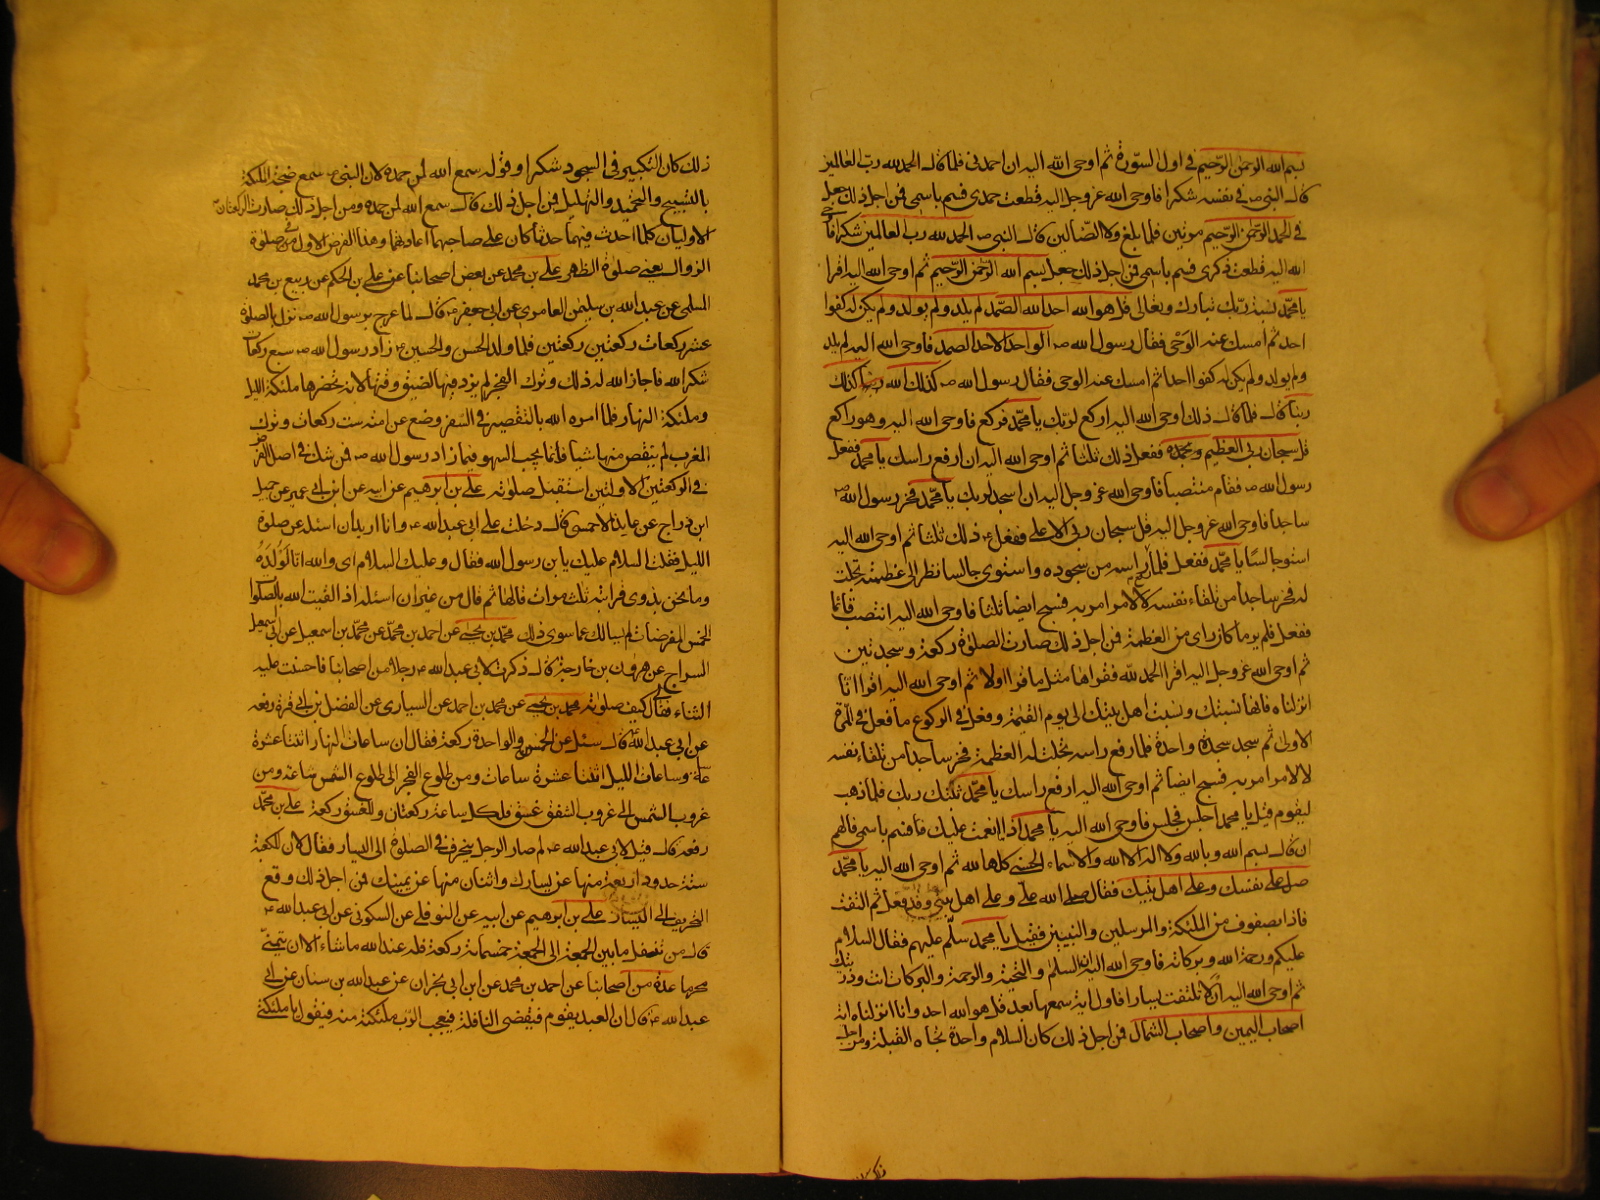 بسم الله الرحمن الرحيم في اول السورة ثم اوحى الله اليه ان احمدني فلما قال الحمد لله رب العالمين
قال النبي ص في نفسه شكرا فاوحى الله عز وجل اليه قطعت حمدي فسم باسمي فمن اجل ذلك جعل
في الحمد الرحمن الرحيم مرتين فلما بلغ ولا الضالين قال النبي ص الحمد لله رب العالمين شكرا فاوحى
الله اليه قطعت ذكري فسم باسمي فمن اجل ذلك جعل بسم الله الرحمن الرحيم ثم اوحى الله اليه اقرا
يا محمد نسبة ربك تبارك وتعالى قل هو الله احد الله الصمد لم يلد ولم يولد ولم يكن له كفوا
احد ثم امسك عنه الوحي فقال رسول الله ص الواحد الاحد الصمد فاوحى الله اليه لم يلد
ولم يولد ولم يكن له كفوا احد ثم امسك عنه الوحي فقال رسول الله ص كذلك الله ربنا كذلك
ربنا قال فلما قال ذلك اوحى الله اليه اركع لربك يا محمد فركع فاوحى الله اليه وهو راكع
قل سبحان ربي العظيم وبحمده ففعل ذلك ثلثا ثم اوحى الله اليه ان ارفع راسك يا محمد ففعل
رسول الله ص فقام منتصبا فاوحى الله عز وجل اليه ان اسجد لربك يا محمد فخر رسول الله ص
ساجدا فاوحى الله عز وجل اليه قل سبحان ربي الاعلى ففعل ع ذلك ثلثا ثم اوحى الله اليه
استو جالسا يا محمد ففعل فلما رفع راسه من سجوده واستوى جالسا نظر الى عظمته تجلت
له فخر ساجدا من تلقاء نفسه لا لامر امر به فسبح ايضا ثلثا فاوحى الله اليه انتصب قائما
ففعل فلم ير ما كان راى من العظمة فمن اجل ذلك صارت الصلوة ركعة وسجدتين
ثم اوحى الله عز وجل اليه اقرا الحمد لله فقراها مثل ما قرا اولا ثم اوحى الله اليه اقرا انا
انزلناه فانها نسبتك ونسبت اهل بيتك الى يوم القيمة وفعل في الركوع ما فعل في المرة
الاولى ثم سجد سجدة واحدة فلما رفع راسه تجلت له العظمة فخر ساجدا من تلقاء نفسه
لا لامر امر به فسبح ايضا ثم اوحى الله اليه ارفع راسك يا محمد ثبتك ربك فلما ذهب
ليقوم قيل يا محمد اجلس فجلس فاوحى الله اليه يا محمد اذا انعمت عليك فسم باسمي فالهم
ان قال بسم الله وبالله ولا اله الا الله والاسماء الحسنى كلها لله ثم اوحى الله اليه يا محمد
صل على نفسك وعلى اهل بيتك فقال صلى الله علي وعلى اهل بيتي وقد فعل ثم التفت
فاذا بصفوف من الملئكة والمرسلين والنبيين فقيل يا محمد سلم عليهم فقال السلام
عليكم ورحمة الله وبركاته فاوحى الله اليه ان السلم والتحية والرحمة والبركات انت وذريتك
ثم اوحى الله اليه ان لا تلتفت يسارا فاول اية سمعها بعد قل هو الله احد وانا انزلناه اية
اصحاب اليمين واصحاب الشمال فمن اجل ذلك كان السلام واحدة تجاه القبلة ومن اجل
ذلك كان التكبير في السجود شكرا وقوله سمع الله لمن حمده لان النبي ص سمع ضجة الملئكة
بالتسبيح والتحميد والتهليل فمن اجل ذلك قال سمع الله لمن حمده ومن اجل ذلك صارت الركعتان
الاوليان كلما احدث فيهما حدثا كان على صاحبهما اعادتهما وهذا الفرض الاول في صلوة
الزوال يعني صلوة الظهر علي بن محمد عن بعض اصحابنا عن علي بن الحكم عن ربيع بن محمد
المسلي عن عبد الله بن سليمن العامري عن ابي جعفر ع قال لما عرج برسول الله ص نزل بالصلوة
عشر ركعات ركعتين ركعتين فلما ولد الحسن والحسين ع زاد رسول الله ص سبع ركعات
شكرا لله فاجاز الله له ذلك وترك الفجر لم يزد فيها لضيق وقتها لانه تحضرها ملئكة الليل
وملئكة النهار فلما امره الله بالتقصير في السفر وضع عن امته ست ركعات وترك
المغرب لم ينقص منها شيا فانما يجب السهو فيما زاد رسول الله ص فمن شك في اصل الفرض
في الركعتين الاولتين استقبل صلوته علي بن ابرهيم عن ابيه عن ابن ابي عمير عن جميل
ابن دراج عن عايذ الاحمسي قال دخلت على ابي عبد الله ع وانا اريد ان اسئله عن صلوة
الليل فقلت السلام عليك يا بن رسول الله فقال وعليك السلام اي والله انا لولده
وما نحن بذوي قرابته ثلث مرات قالها ثم قال من غير ان اسئله اذا لقيت الله بالصلوات
الخمس المفروضات لم يسالك عما سوى ذلك محمد بن يحيى عن احمد بن محمد عن محمد بن اسمعيل عن ابي اسمعيل
السراج عن هرون بن خارجة قال ذكرت لابي عبد الله ع رجلا من اصحابنا فاحسنت عليه
الثناء فقال لي كيف صلوته محمد بن يحيى عن محمد بن احمد عن السياري عن الفضل بن ابي قرة رفعه
عن ابي عبد الله ع قال سئل عن الخمسين والواحدة ركعة فقال ان ساعات النهار اثنتا عشرة
ساعة وساعات الليل اثنتا عشرة ساعات ومن طلوع الفجر الى طلوع الشمس ساعة ومن
غروب الشمس الى غروب الشفق غسق فلكل ساعة ركعتان وللغسق ركعة علي بن محمد
رفعه قال قيل لابي عبد الله ع لم صار الرجل ينحرف في الصلوة الى اليسار فقال لان للكعبة
ستة حدود اربعة منها عن يسارك واثنان منها عن يمينك فمن اجل ذلك وقع
التحريف الى اليسار علي بن ابرهيم عن ابيه عن النوفلي عن السكوني عن ابي عبد الله ع
قال من تنفل ما بين الجمعة الى الجمعة خمسمائة ركعة فله عند الله ما شاء الا ان يتمنى
محرما عدة من اصحابنا عن احمد بن محمد عن ابن ابي نجران عن عبد الله بن سنان عن ابي
عبد الله ع قال ان العبد يقوم فيقضي النافلة فيعجب الرب ملئكته منه فيقول يا ملئكتي